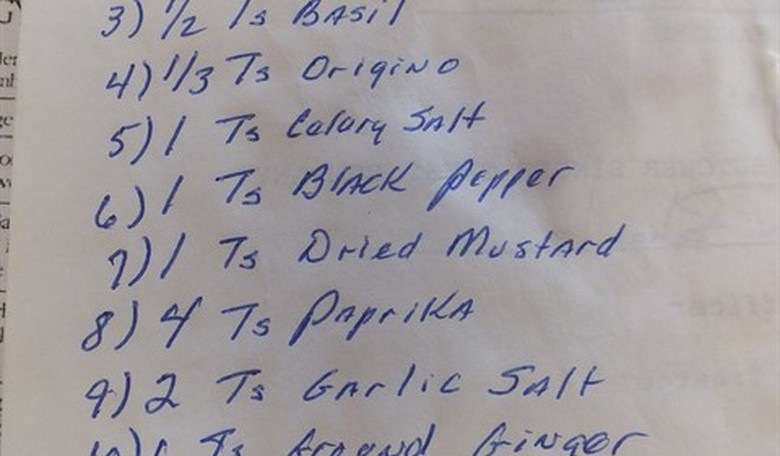 3) 1/2 Ts Basil
4) 1/3 Ts Origino
5) 1 Ts Calary Salt
6) 1 Ts Black Pepper
7) 1 Ts Dried Mustard
8) 4 Ts Paprika
9) 2 Ts Garlic Salt
10) 1 Ts Ground Ginger